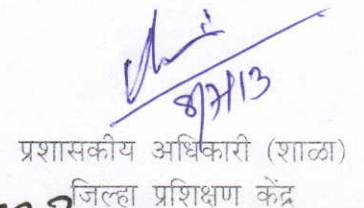 8/7/13
प्रशासकीय अधिकारी (शाळा)
जिल्हा प्रशिक्षण केंद्र